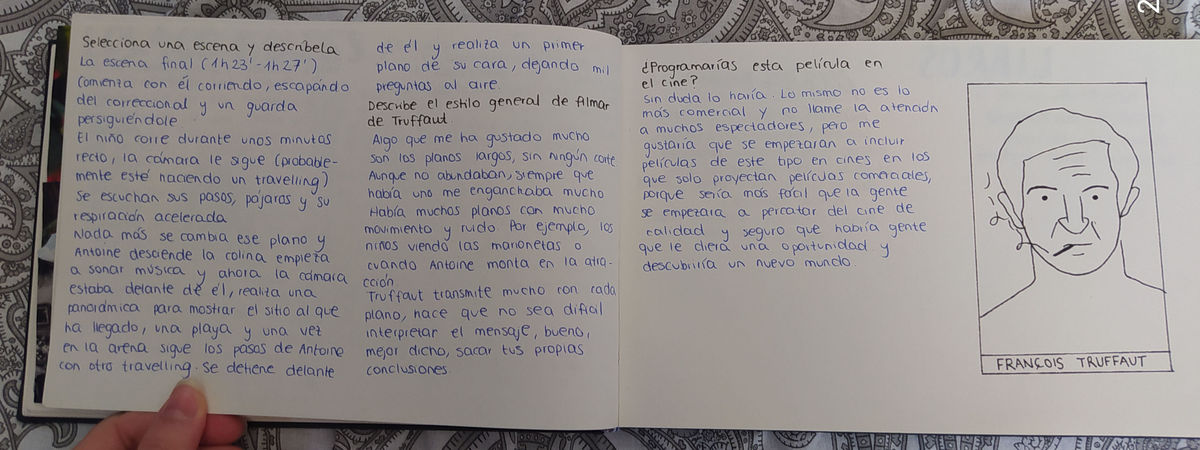 Selecciona una escena y descríbela
La escena final (1h23'-1h27')
Comienza con él corriendo, escapando
del correccional y un guarda
persiguiéndole
El niño corre durante unos minutos
recto, la cámara le sigue (probable-
mente esté haciendo un travelling)
Se escuchan sus pasos, pájaros y su
respiración acelerada
Nada más se cambia ese plano y
Antoine desciende la colina empieza
a sonar música y ahora la cámara
estaba delante de él, realiza una
panorámica para mostrar el sitio al que
ha llegado, una playa y una vez
en la arena sigue los pasos de Antoine
con otro travelling. Se detiene delante
de él y realiza un primer
plano de su cara, dejando mil
preguntas al aire.
Describe el estilo general de filmar
de Truffaut
Algo que me ha gustado mucho
son los planos largos, sin ningún corte
Aunque no abundaban, siempre que
había uno me enganchaba mucho
Había muchos planos con mucho
movimiento y ruido. Por ejemplo, los
niños viendo las marionetas o
cuando Antoine monta en la atra-
cción
Truffaut transmite mucho con cada
plano, hace que no sea difícil
interpretar el mensaje, bueno,
mejor dicho, sacar tus propias
conclusiones.
¿Programarías esta película en
el cine?
Sin duda lo haría. Lo mismo no es lo
más comercial y no llame la atención
a muchos espectadores, pero me
gustaría que se empezaran a incluir
películas de este tipo en cines en los
que solo proyectan películas comerciales,
porque sería más fácil que la gente
se empezara a percatar del cine de
calidad y seguro que habría gente
que le diera una oportunidad y
descubriría un nuevo mundo.
FRANÇOIS TRUFFAUT